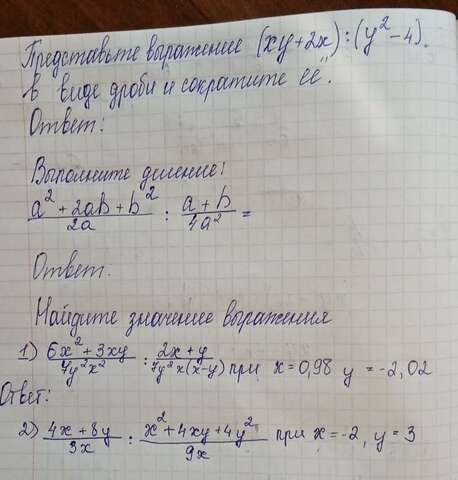 Представьте выражение (xy+2x):(y²-4).
в виде дроби и сократите ее".
Ответ:
Выполните деление:
a²+2ab+b²/2a : a+b/4a² =
Ответ.
Найдите значение выражения
1) 6x²+3xy/7y²x² : 2x+y/7y²x(x-y) при x=0,98 y=-2,02
Ответ:
2) 4x+8y/3x : x²+4xy+4y²/9x при x=-2, y=3